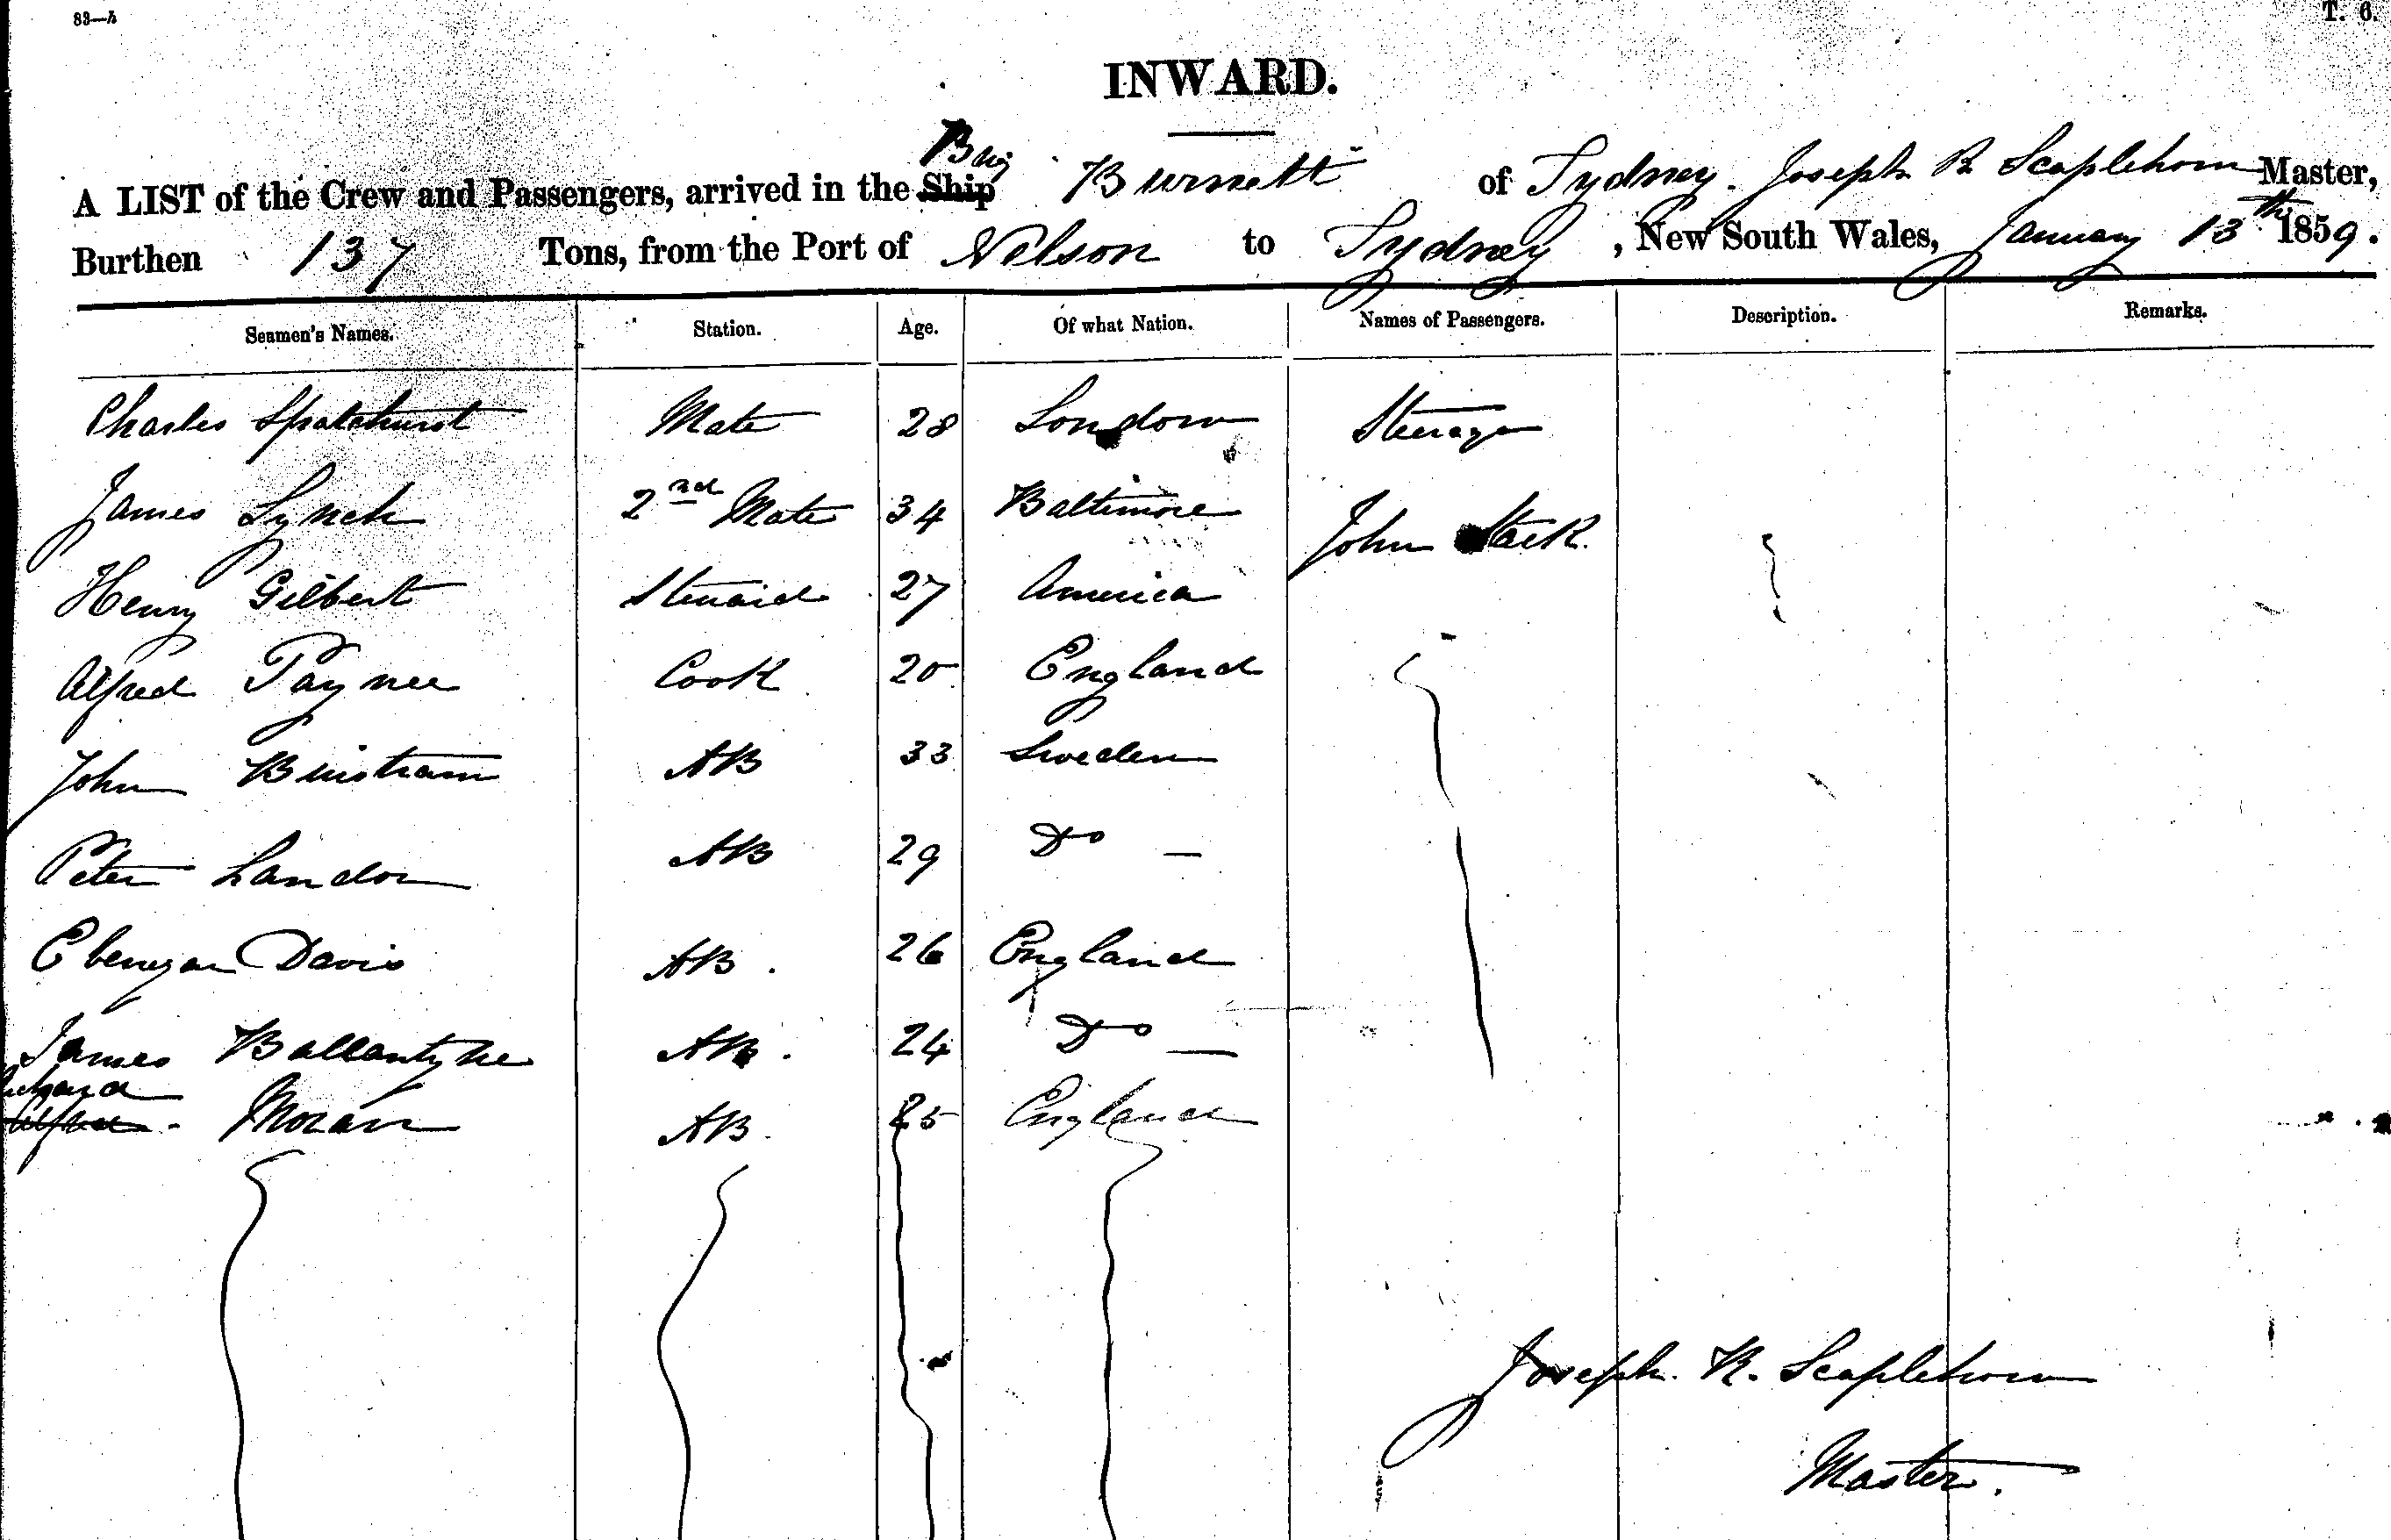 83—h T. 6.
INWARD.
Brig
A LIST of the Crew and Passengers, arrived in the Ship Burnett of Sydney. Joseph R Scaplehorn Master,
Burthen 137 Tons, from the Port of Nelson to Sydney, New South Wales, January 13th 1859.
Seamen's Names. Station. Age. Of what Nation. Names of Passengers. Description. Remarks.
Charles Spatchurst Mate 28 London Steerage
James Lynch 2nd Mate 34 Baltimore John Stack
Henry Gilbert Steward 27 America
Alfred Paynee Cook 20 England
John Binstram AB 33 Sweden
Peter Landon AB 29 Do —
Ebenezar Davis AB. 26 England
James Ballantyne AB. 24 Do —
Richard
Alfred Moran AB. 25 England
Joseph. R. Scaplehorn
Master.